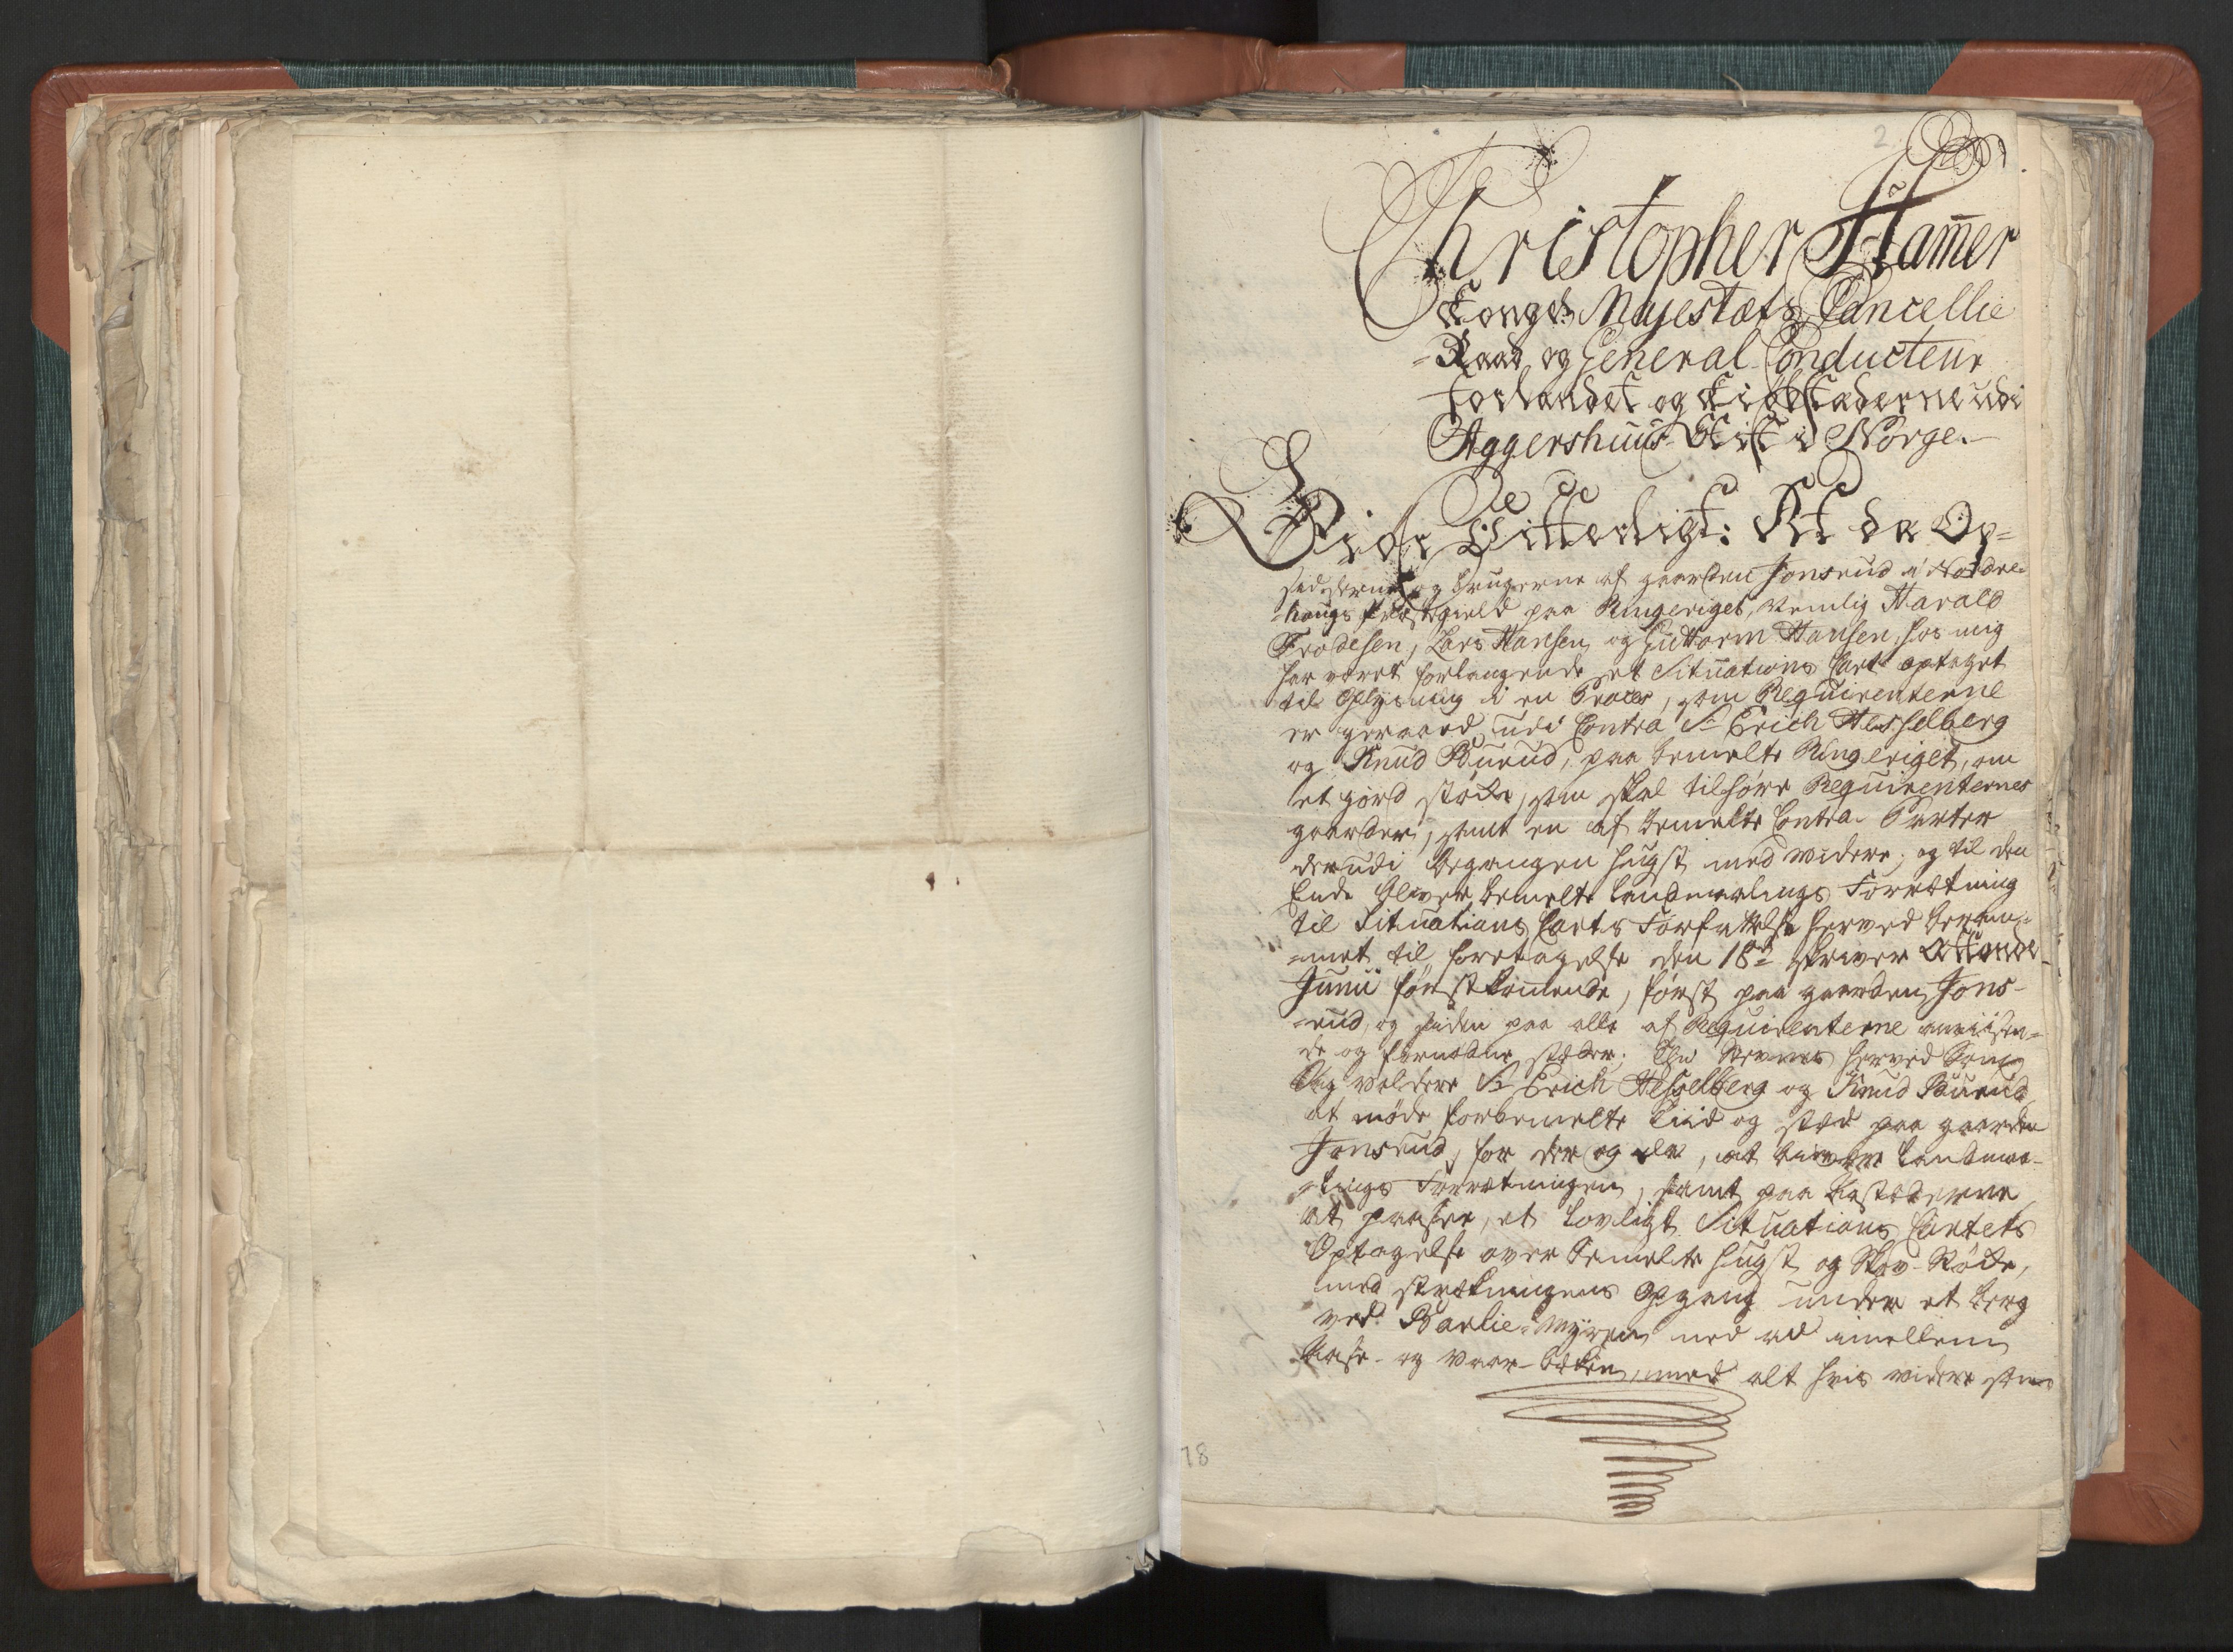 2
Christopher Ham̄er
Kongel: Majestæts Cancellie
-Raad og General-Conducteur
for landet og Kiøbstæderne udi
Aggershuus Stift i Norge.
Giør Vitterligt: At da Op=
sidderne og brugerne af gaarden Jonsrud i Nordre-
-hougs Præstegield paa Ringeriget, Nemlig Harald
Frodesen, Lars Hansen og Guttorm Hansen, hos mig
har været forlangende et Situations Cart optaget
til Oplysning i en Proces, som Requirenterne
er geraad udi Contra Sr Erich Hesselberg
og Knud Burud, paa bemelte Ringeriget, om
et giord støcke, som skal tilhøre Requirenternes
gaarder, samt en af bemelte Contra-Parter
derudi begangen hugst med widere; og til den
Ende bliver bemelte Landmaalings Forrætning
til Situations Carts Forfattelse herved beram-
-met til foretagelse den 18de skriver Attende
Junii førstkom̄ende, først paa gaarden Jons-
-rud, og siden paa alle af Requirenterne anviisen-
de og fornødne stæder. Thi stevnes herved
Sr Erich Hesselberg og Knud Burud
at møde forbemelte Tiid og stæd paa gaarden
Jonsrud, for der og da, at bievære Landmaa-
-lings Forrætningen, samt paa aastæderne
at paasee, et lovligt Situations Cartets
Optagelse over bemelte hugst og Skov-Støcke,
med strækningens Opgang under et berg
ved Barlie-Myren ned ad imellem
Aase- og Vaar-bækken, med alt hvis widere som
18